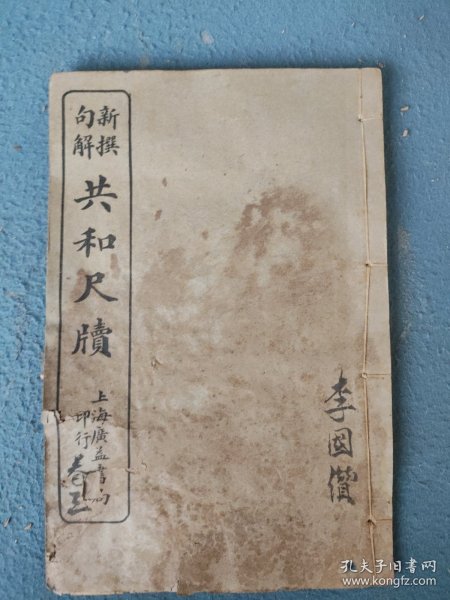 新撰
句解
共和尺牘
上海廣益書局
印行
卷三
李國
孔夫子旧书网
www.kongfz.com